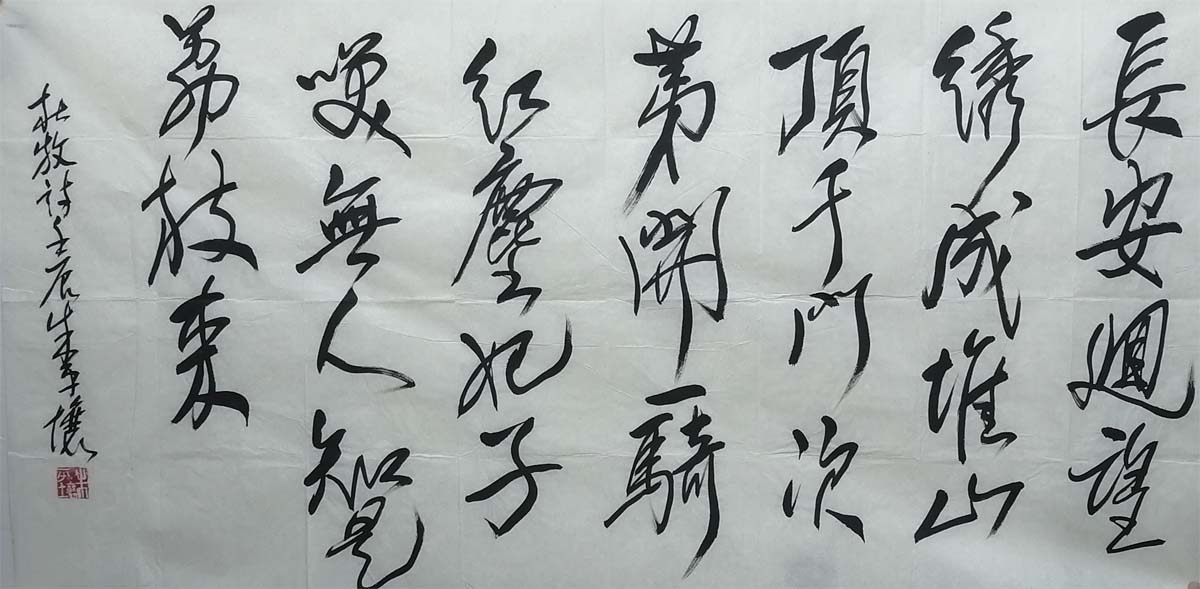 長安迴望
綉成堆山
頂千門次
第開一騎
红塵妃子
咲無人知是
荔枝来
杜牧诗壬辰